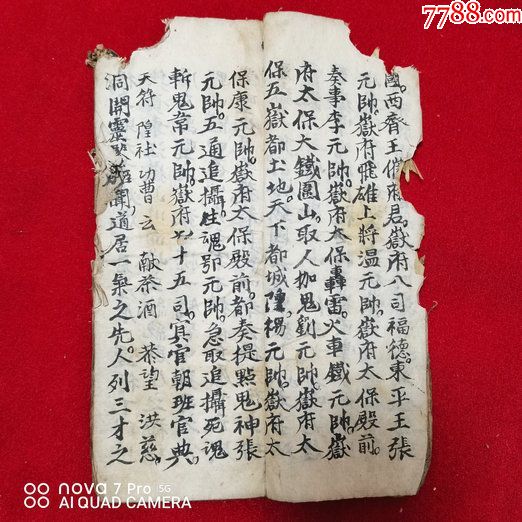 7788.com
國。西齊王催府君。嶽府八司福德。東平王張
元帥。嶽府飛雄上將溫元帥。嶽府太保殿前。
奏事李元帥。嶽府太保轟雷。火車鐵元帥。嶽
府太保大鐵圍山。取人枷鬼劉元帥。嶽府太
保五嶽都土地。天下都城隍。楊元帥。嶽府太
保康元帥。嶽府太保殿前。都奏提點鬼神張
元帥。五通追攝。生魂鄂元帥。急取追攝死魂
斬鬼韋元帥。嶽府七十五司。冥官朝班官典。
天符隍社功曹云 献茶酒 恭望洪慈。
洞開靈 聞。道居一氣之先。人列三才之
nova 7 Pro 5G
AI QUAD CAMERA